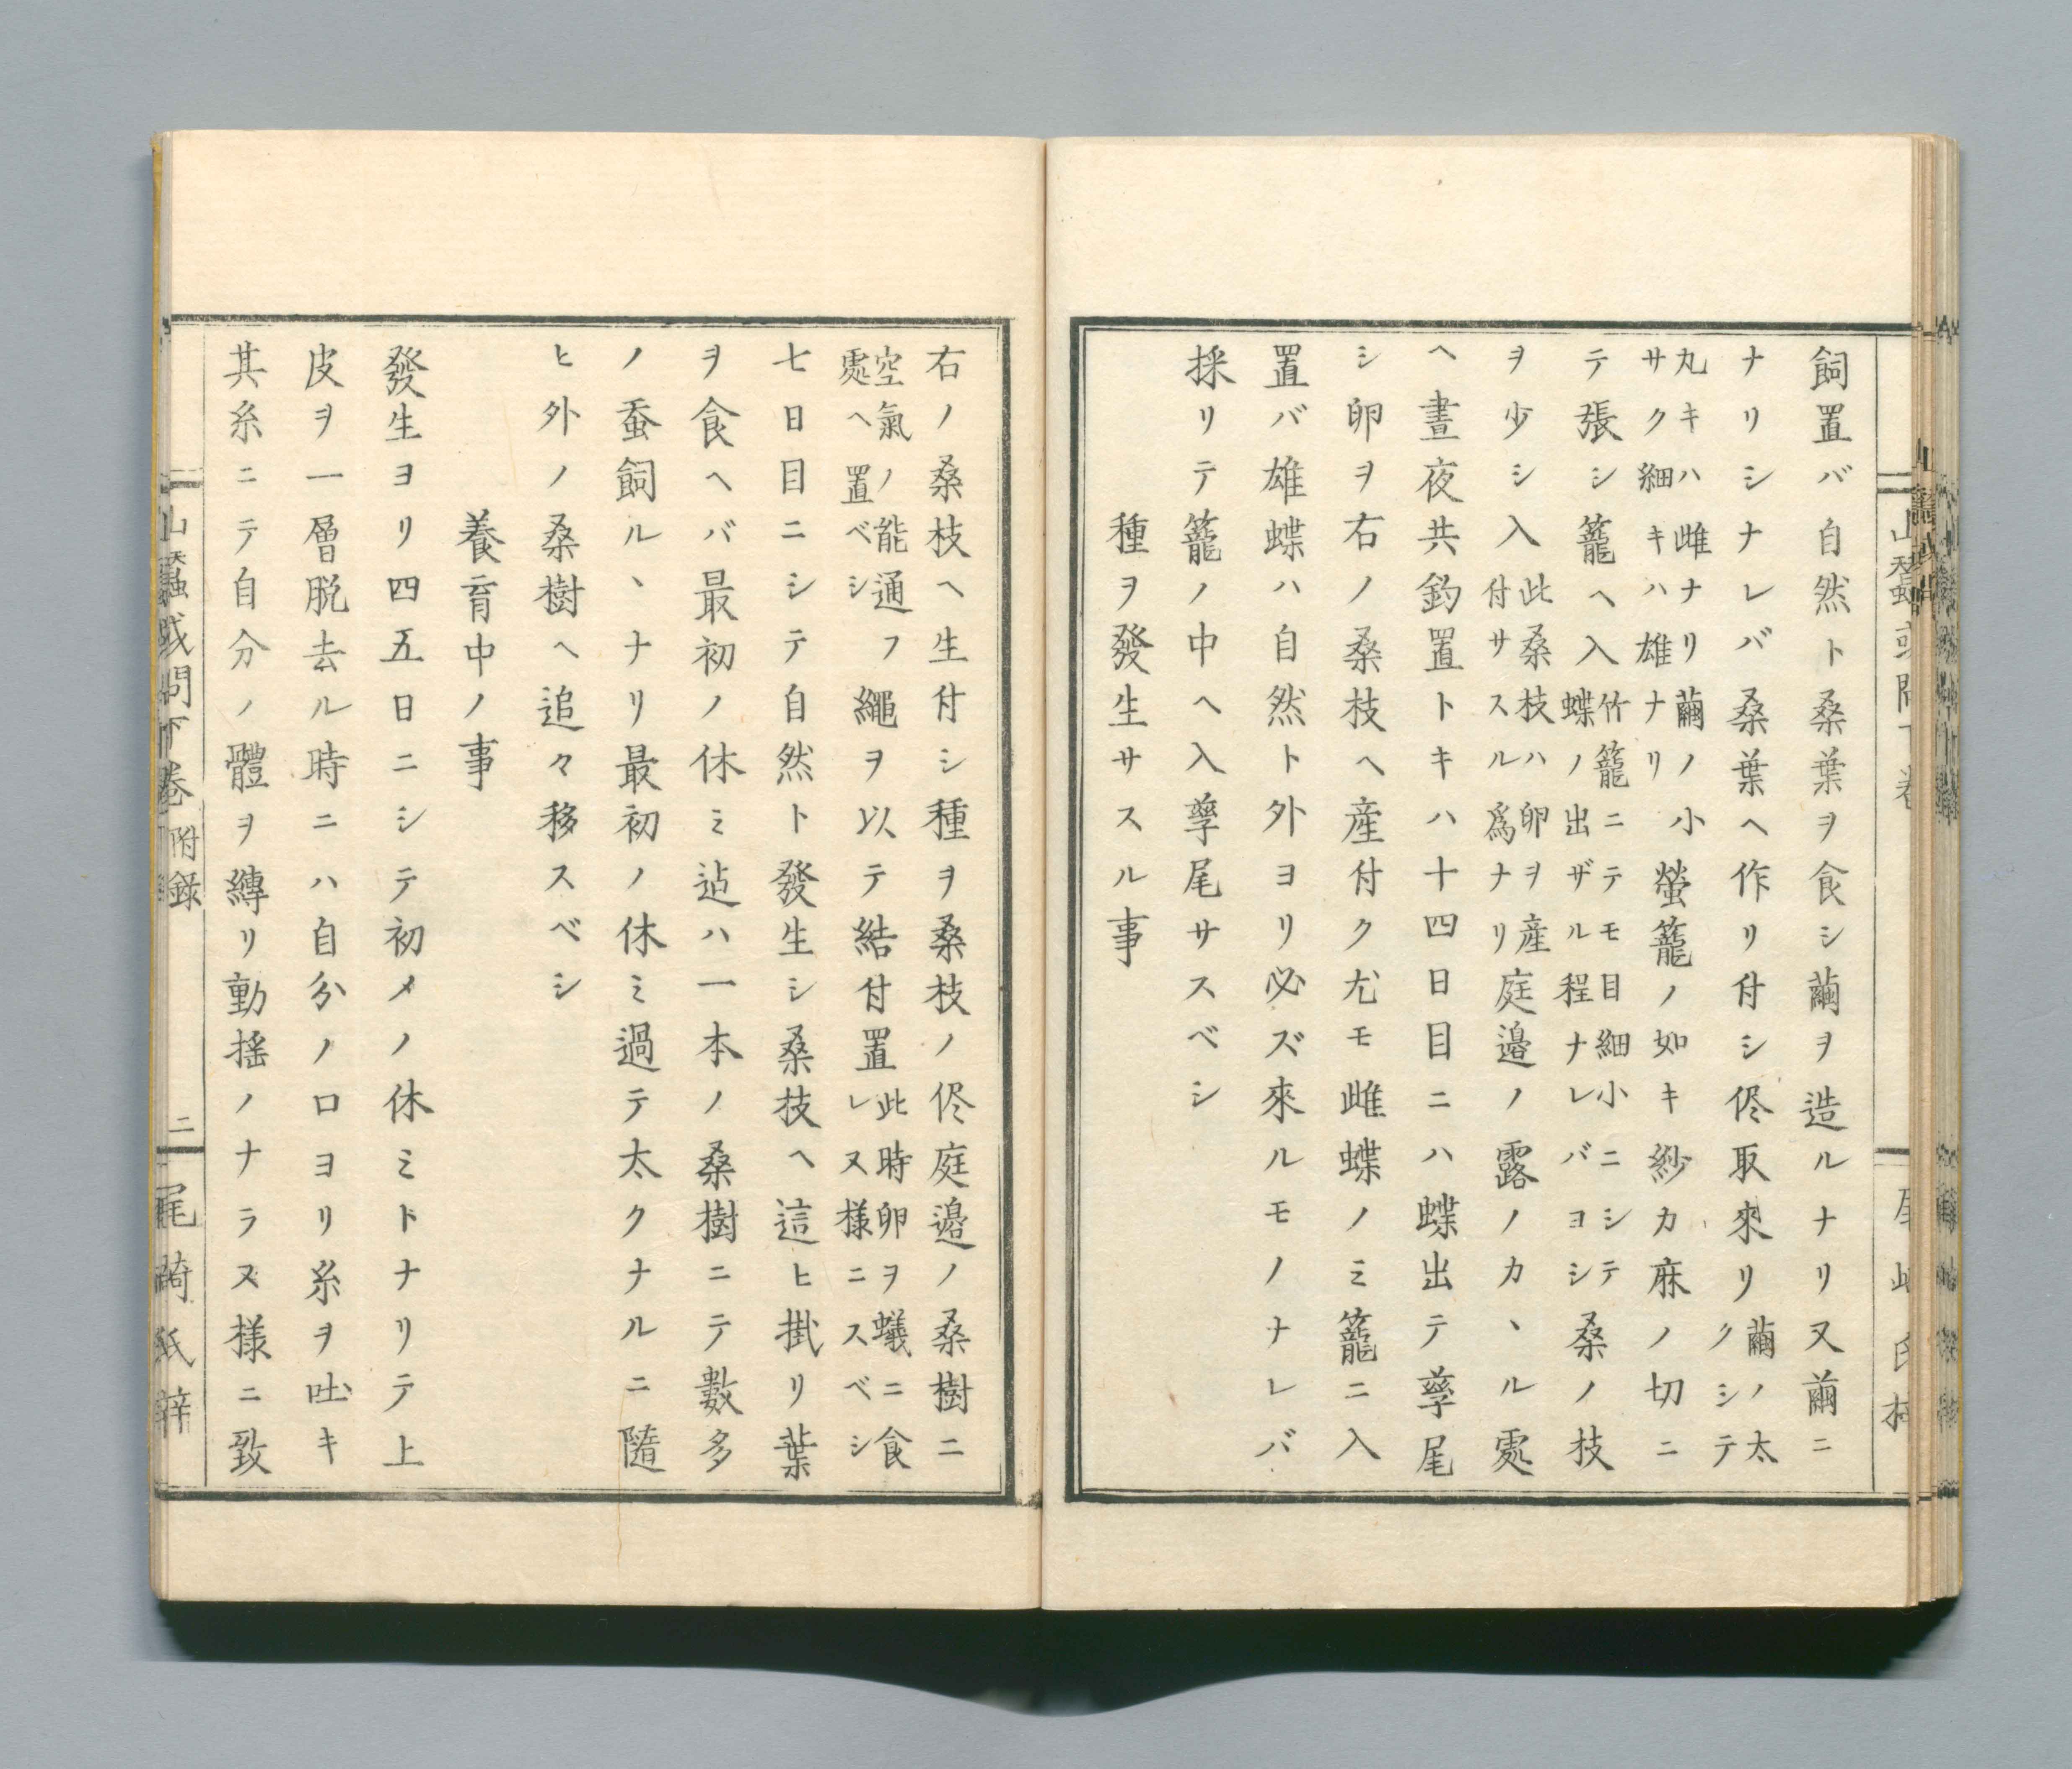 飼置バ自然ト桑葉ヲ食シ繭ヲ造ルナリ又繭ニ
ナリシナレバ桑葉ヘ作リ付シ侭取來リ繭ノ太クシテ
丸キハ雌ナリ繭ノ小サク細キハ雄ナリ螢籠ノ如キ紗カ麻ノ切ニ
テ張シ籠ヘ入竹籠ニテモ目細小ニシテ蝶ノ出ザル程ナレバヨシ桑ノ枝
ヲ少シ入此桑枝ハ卵ヲ産付サスル爲ナリ庭邉ノ露ノカヽル處
ヘ晝夜共釣置トキハ十四日目ニハ蝶出テ孳尾
シ卵ヲ右ノ桑枝ヘ産付ク尤モ雌蝶ノミ籠ニ入
置バ雄蝶ハ自然ト外ヨリ必ズ來ルモノナレバ
採リテ籠ノ中ヘ入孳尾サスベシ
種ヲ發生サスル事
右ノ桑枝ヘ生付シ種ヲ桑枝ノ侭庭邉ノ桑樹ニ
空氣ノ能通フ處ヘ置ベシ繩ヲ以テ結付置此時卵ヲ蟻ニ食レヌ様ニスベシ
七日目ニシテ自然ト發生シ桑枝ヘ這ヒ掛リ葉
ヲ食ヘバ最初ノ休ミ迠ハ一本ノ桑樹ニテ數多
ノ蚕飼ルヽナリ最初ノ休ミ過テ太クナルニ隨
ヒ外ノ桑樹ヘ追々移スベシ
養育中ノ事
發生ヨリ四五日ニシテ初メノ休ミトナリテ上
皮ヲ一層脱去ル時ニハ自分ノ口ヨリ糸ヲ吐キ
其糸ニテ自分ノ體ヲ縛リ動揺ノナラヌ様ニ致
山蠶或問下卷 附錄 二